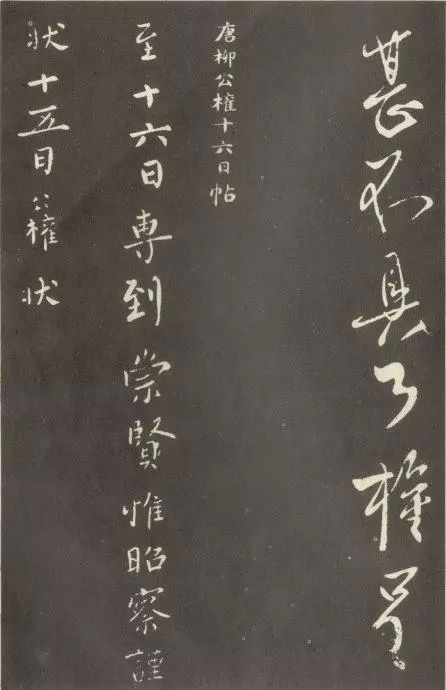 甚不具公權
唐柳公權十六日帖
至十六日専到崇賢惟昭察謹
狀十五日公權狀